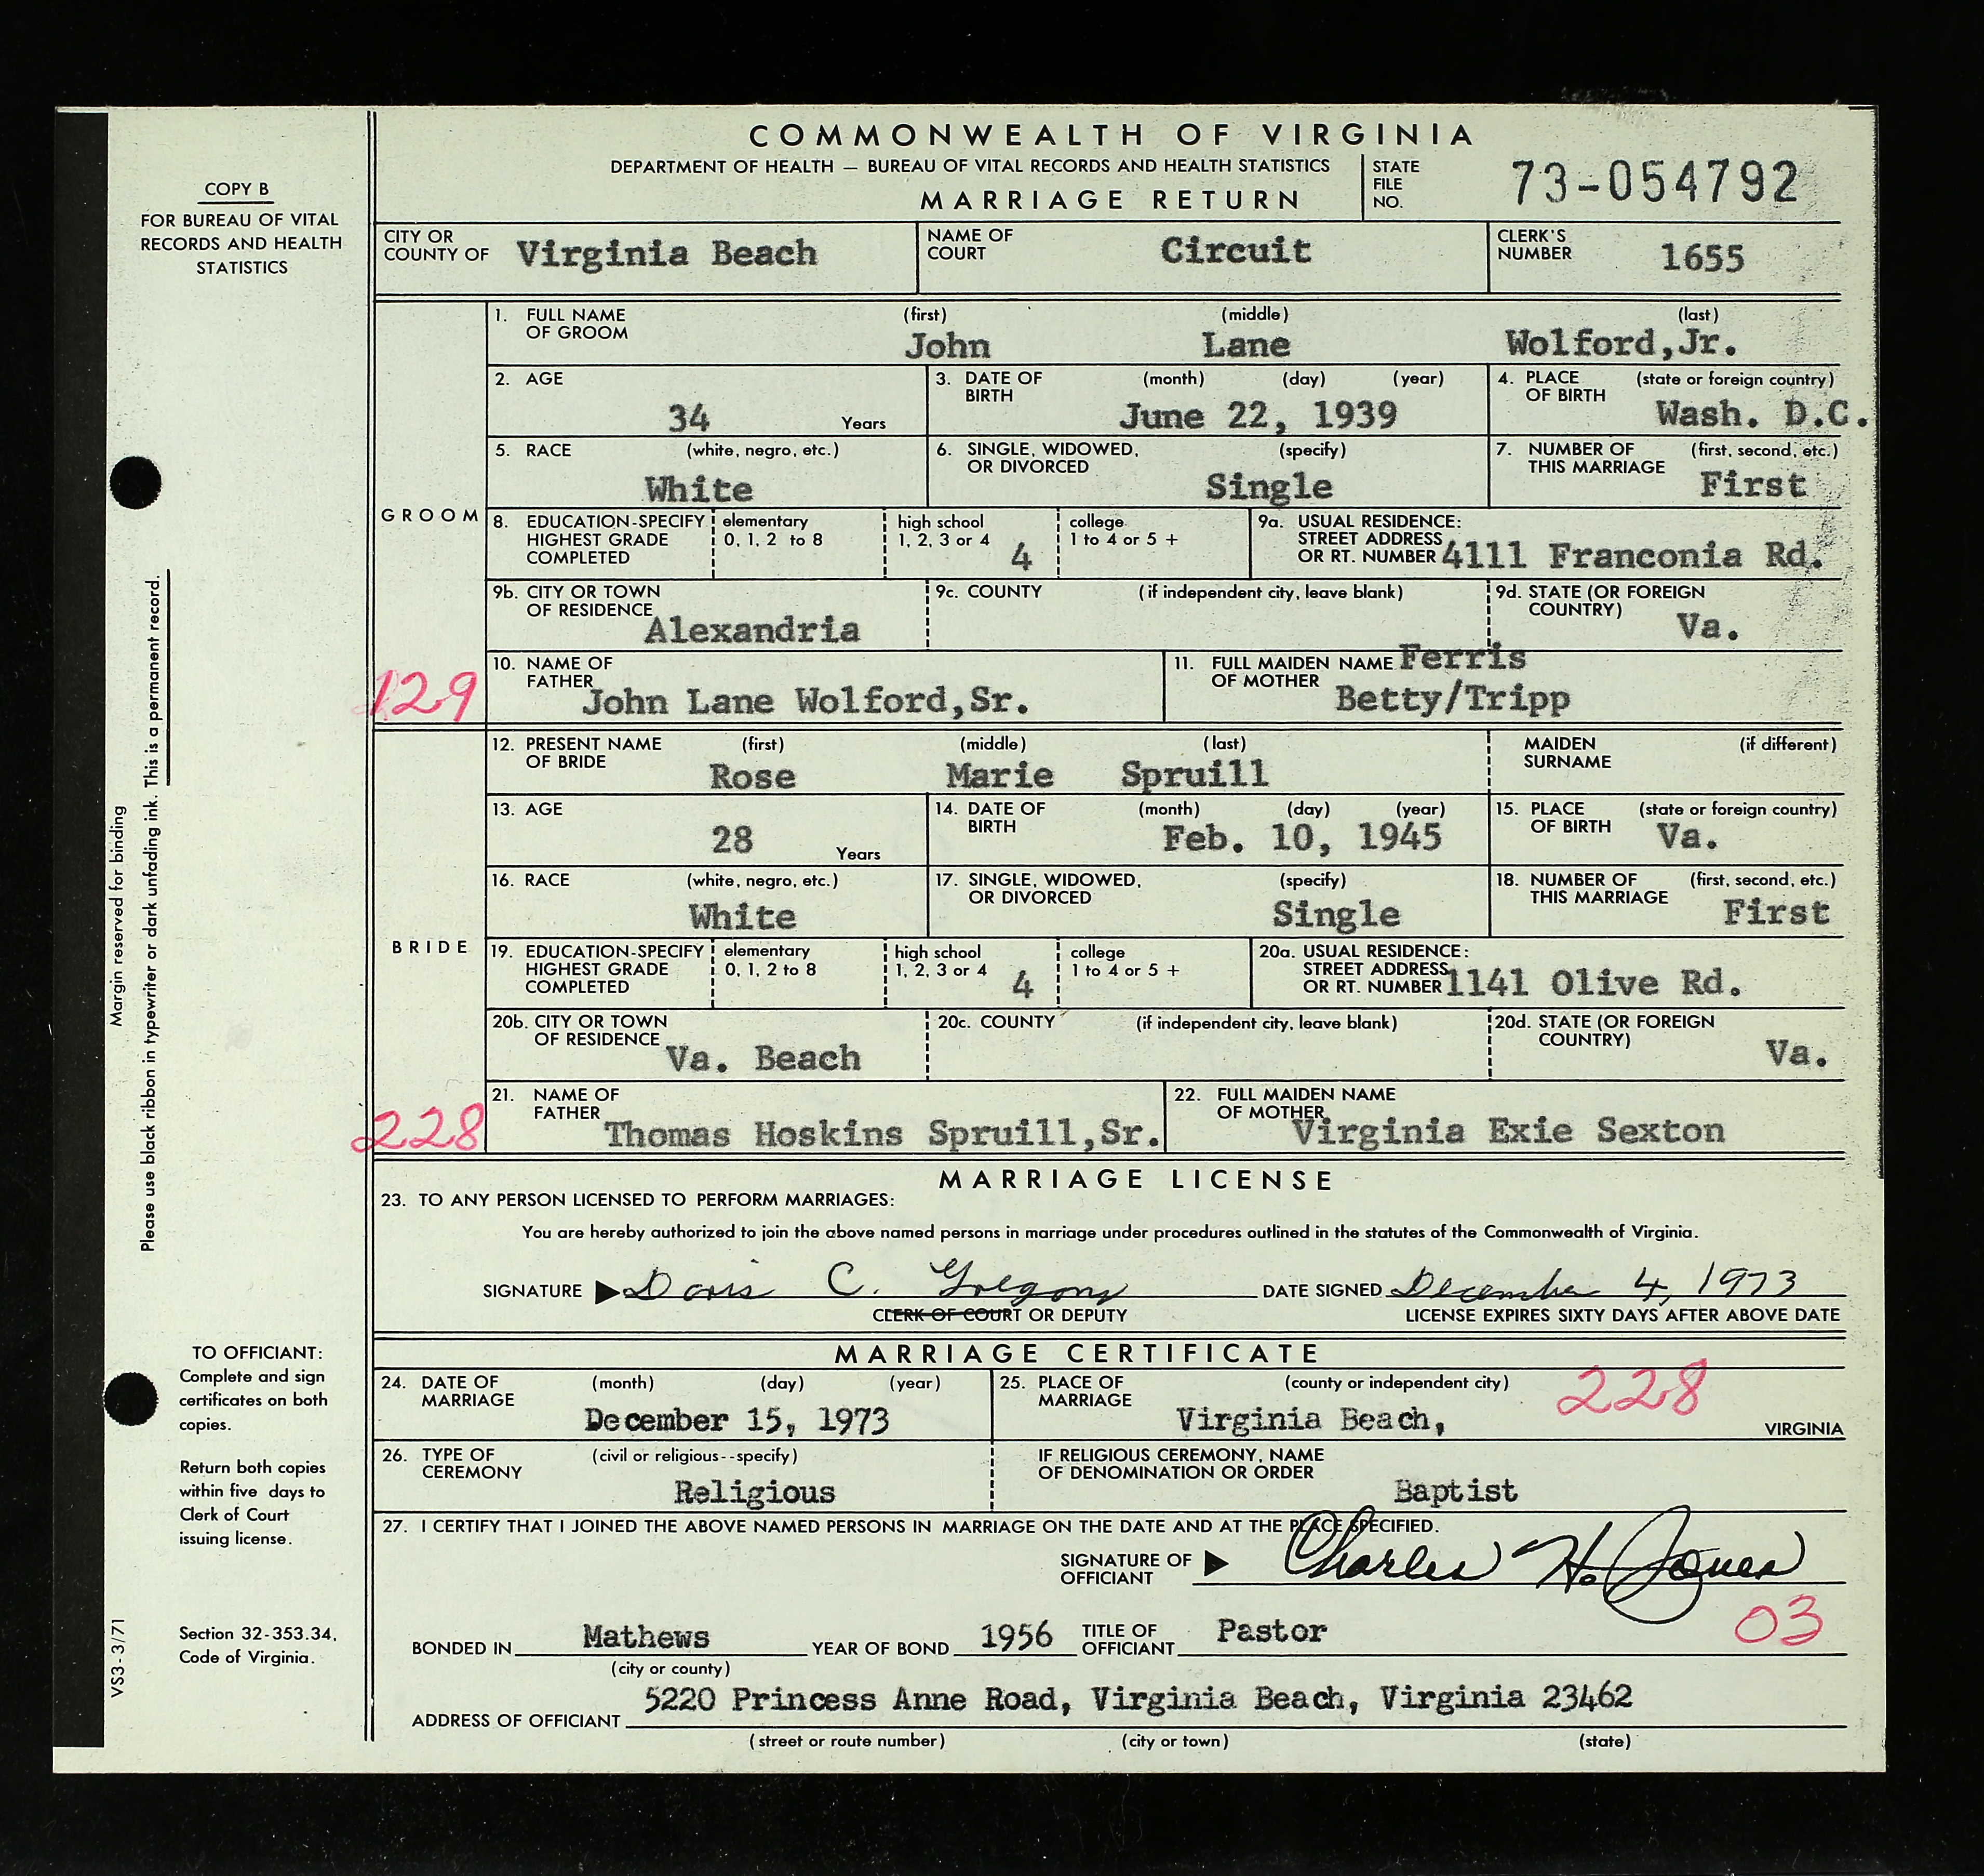 COMMONWEALTH OF VIRGINIA
DEPARTMENT OF HEALTH — BUREAU OF VITAL RECORDS AND HEALTH STATISTICS
MARRIAGE RETURN
STATE FILE NO. 73-054792
COPY B
FOR BUREAU OF VITAL
RECORDS AND HEALTH
STATISTICS
CITY OR COUNTY OF Virginia Beach
NAME OF COURT Circuit
CLERK'S NUMBER 1655
GROOM
1. FULL NAME OF GROOM (first) John (middle) Lane (last) Wolford,Jr.
2. AGE 34 Years
3. DATE OF BIRTH (month) (day) (year) June 22, 1939
4. PLACE OF BIRTH (state or foreign country) Wash. D.C.
5. RACE (white, negro, etc.) White
6. SINGLE, WIDOWED, OR DIVORCED (specify) Single
7. NUMBER OF THIS MARRIAGE (first, second, etc.) First
8. EDUCATION-SPECIFY HIGHEST GRADE COMPLETED elementary 0, 1, 2 to 8 high school 1, 2, 3 or 4 4 college 1 to 4 or 5 +
9a. USUAL RESIDENCE: STREET ADDRESS OR RT. NUMBER 4111 Franconia Rd.
9b. CITY OR TOWN OF RESIDENCE Alexandria
9c. COUNTY (if independent city, leave blank)
9d. STATE (OR FOREIGN COUNTRY) Va.
129
10. NAME OF FATHER John Lane Wolford,Sr.
11. FULL MAIDEN NAME OF MOTHER Ferris
Betty/Tripp
BRIDE
12. PRESENT NAME OF BRIDE (first) Rose (middle) Marie (last) Spruill
MAIDEN SURNAME (if different)
13. AGE 28 Years
14. DATE OF BIRTH (month) (day) (year) Feb. 10, 1945
15. PLACE OF BIRTH (state or foreign country) Va.
16. RACE (white, negro, etc.) White
17. SINGLE, WIDOWED, OR DIVORCED (specify) Single
18. NUMBER OF THIS MARRIAGE (first, second, etc.) First
19. EDUCATION-SPECIFY HIGHEST GRADE COMPLETED elementary 0, 1, 2 to 8 high school 1, 2, 3 or 4 4 college 1 to 4 or 5 +
20a. USUAL RESIDENCE: STREET ADDRESS OR RT. NUMBER 1141 Olive Rd.
20b. CITY OR TOWN OF RESIDENCE Va. Beach
20c. COUNTY (if independent city, leave blank)
20d. STATE (OR FOREIGN COUNTRY) Va.
228
21. NAME OF FATHER Thomas Hoskins Spruill,Sr.
22. FULL MAIDEN NAME OF MOTHER Virginia Exie Sexton
MARRIAGE LICENSE
23. TO ANY PERSON LICENSED TO PERFORM MARRIAGES:
You are hereby authorized to join the above named persons in marriage under procedures outlined in the statutes of the Commonwealth of Virginia.
SIGNATURE Doris C. Gregory DATE SIGNED December 4, 1973
CLERK OF COURT OR DEPUTY LICENSE EXPIRES SIXTY DAYS AFTER ABOVE DATE
MARRIAGE CERTIFICATE
24. DATE OF MARRIAGE (month) (day) (year) December 15, 1973
25. PLACE OF MARRIAGE (county or independent city) Virginia Beach, 228 VIRGINIA
26. TYPE OF CEREMONY (civil or religious--specify) Religious
IF RELIGIOUS CEREMONY, NAME OF DENOMINATION OR ORDER Baptist
27. I CERTIFY THAT I JOINED THE ABOVE NAMED PERSONS IN MARRIAGE ON THE DATE AND AT THE PLACE SPECIFIED.
SIGNATURE OF OFFICIANT Charles H. Jones
03
BONDED IN Mathews YEAR OF BOND 1956 TITLE OF OFFICIANT Pastor
(city or county)
ADDRESS OF OFFICIANT 5220 Princess Anne Road, Virginia Beach, Virginia 23462
(street or route number) (city or town) (state)
Margin reserved for binding
Please use black ribbon in typewriter or dark unfading ink. This is a permanent record.
TO OFFICIANT:
Complete and sign
certificates on both
copies.
Return both copies
within five days to
Clerk of Court
issuing license.
Section 32-353.34,
Code of Virginia.
VS3-3/71